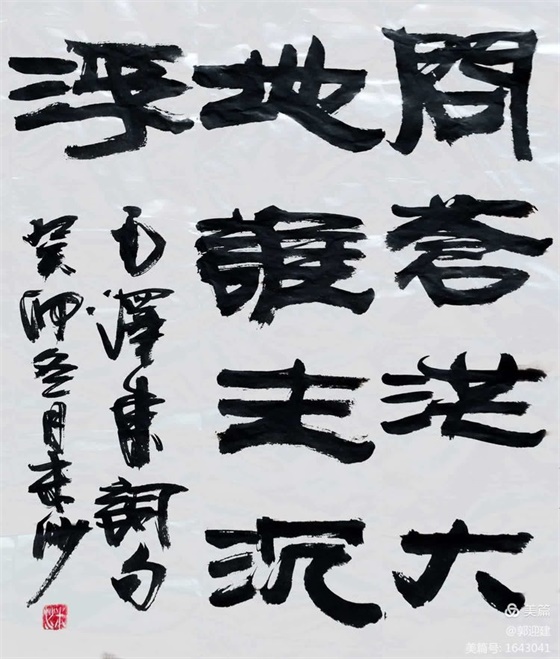 問蒼茫大
地誰主沉
浮
毛澤東詞句
癸卯冬月
美篇
@郭迎建
美篇号: 1643041